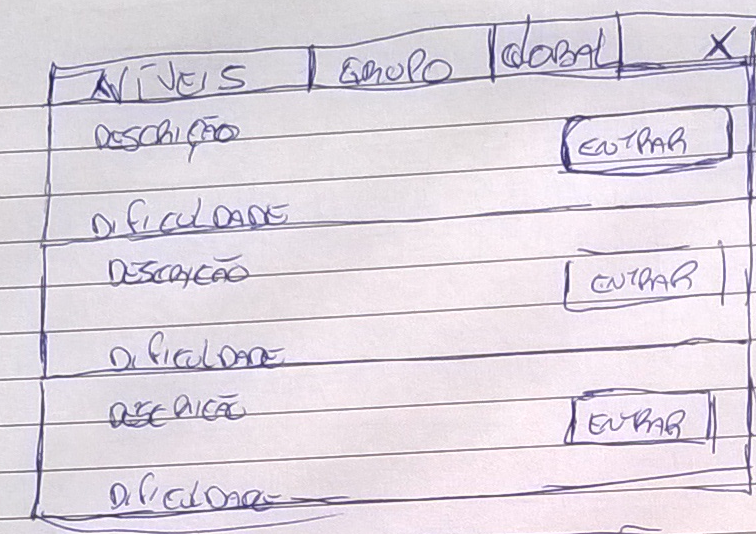 NÍVEIS GRUPO GLOBAL X
DESCRIÇÃO ENTRAR
DIFICULDADE
DESCRIÇÃO ENTRAR
DIFICULDADE
DESCRIÇÃO ENTRAR
DIFICULDADE